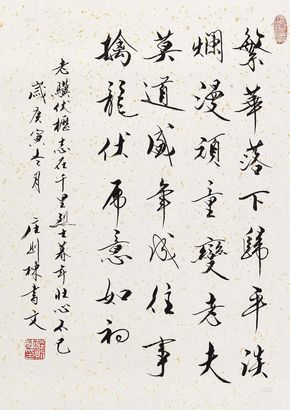 繁華落下歸平淡
爛漫頑童變老夫
莫道盛年成往事
擒龍伏虎意如初
老驥伏櫪志在千里烈士暮年壯心不已
歲庚寅冬月
庄则栋書文